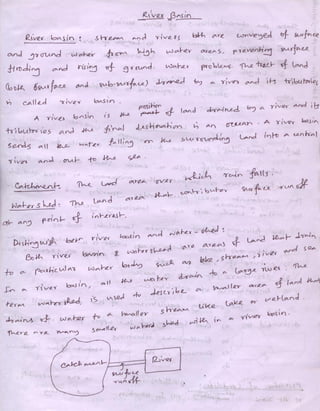 River Basin
River basin : stream and rivers both are conveyed of surface
and ground water from high water areas, preventing surface
flooding and rising of ground water problems. The tract of land
(both surface and sub-surface) drained by a river and its tributaries
is called river basin.
A river basin is the portion of land drained by a river and its
tributaries and the final destination is an ocean. A river basin
sends all the water falling on the surrounding land into a central
river and out to the sea.
Catchment: The land area over which rain falls.
Watershed: The land area that contributes surface runoff
to any point of interest.
Distinguish betn river basin and water shed :
Both river basin & watershed are areas of land that drain
to a particular water body such as lake, stream, river and sea
In a river basin, all the water drain to a large river. The
term watershed is used to describe a smaller area of land that
drains of water to a smaller stream like lake or wetland.
There are many smaller water shed with in a river basin.
Catchment
River
surface
runoff